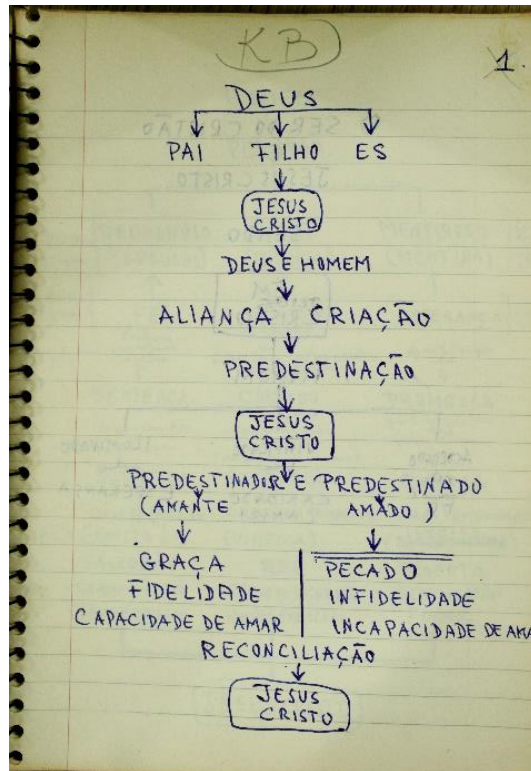 KB
1.
DEUS
PAI FILHO ES
JESUS
CRISTO
DEUS E HOMEM
ALIANÇA CRIAÇÃO
PREDESTINAÇÃO
JESUS
CRISTO
PREDESTINADOR E PREDESTINADO
(AMANTE AMADO)
GRAÇA PECADO
FIDELIDADE INFIDELIDADE
CAPACIDADE DE AMAR INCAPACIDADE DE AMA
RECONCILIAÇÃO
JESUS
CRISTO